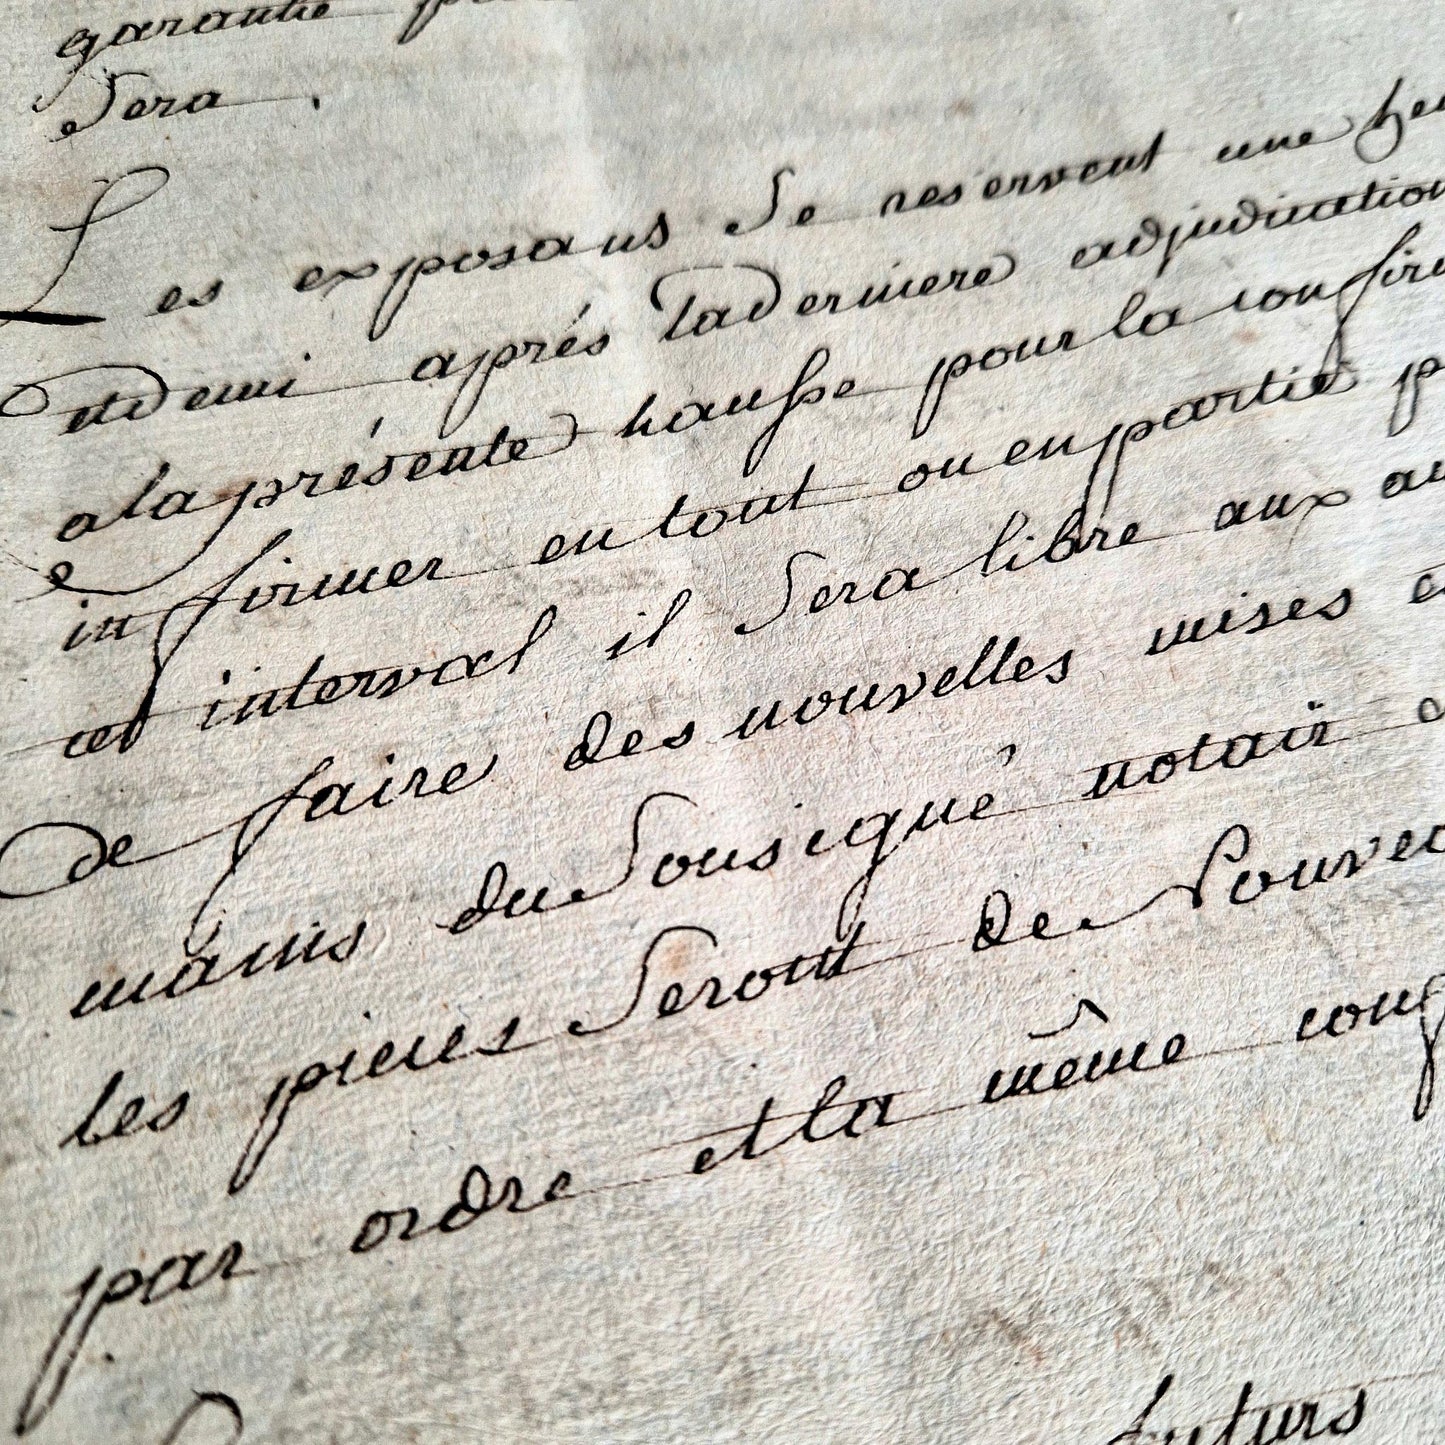 garantie
Sera.
Les exposans Se reservent une
et demi aprés la derniere adjudication
a la présente hausse pour la
infirmer en tout ou en partie
cet interval il Sera libre aux
de faire des nouvelles mises
mains du Sousigné notair
les pieces Seront de
par ordre et la même
futurs